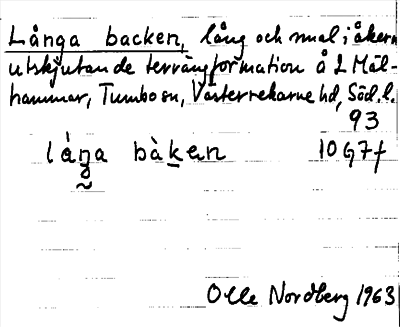 Långa backen, lång och smal i åkern
utskjutande terrängformation å L Mäl-
hammar, Tumbo sn, Västerrekarne hd, Söd. l.
93
lån̥a bàken 10G7f
Olle Nordberg 1963